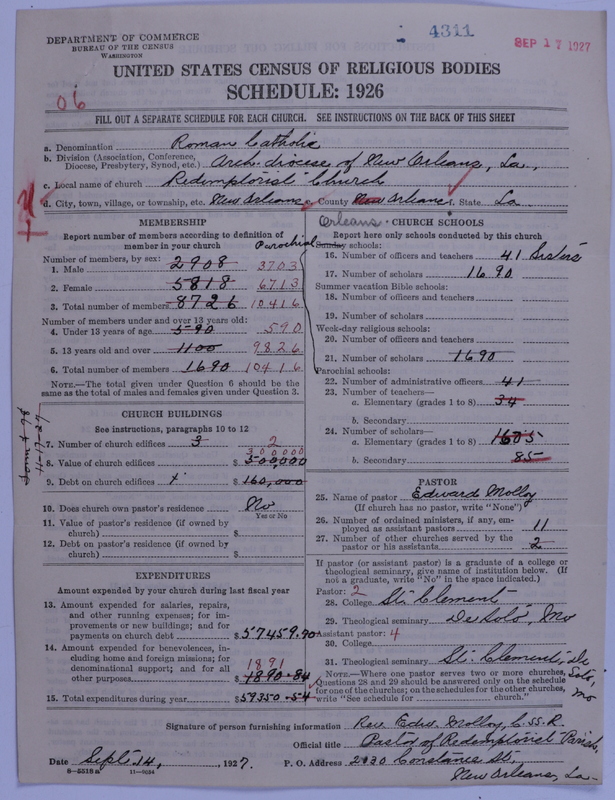 DEPARTMENT OF COMMERCE
BUREAU OF THE CENSUS
WASHINGTON
4311
SEP 17 1927
UNITED STATES CENSUS OF RELIGIOUS BODIES
SCHEDULE: 1926
06
FILL OUT A SEPARATE SCHEDULE FOR EACH CHURCH. SEE INSTRUCTIONS ON THE BACK OF THIS SHEET
a. Denomination Roman Catholic
b. Division (Association, Conference, Diocese, Presbytery, Synod, etc.) Arch-diocese of New Orleans, La.,
c. Local name of church Redemptorist Church
d. City, town, village, or township, etc. New Orleans e. County New Orleans f. State La
MEMBERSHIP
Report number of members according to definition of
member in your church
Number of members, by sex:
1. Male 2908 3703
2. Female 5818 6713
3. Total number of members 8726 10416
Number of members under and over 13 years old:
4. Under 13 years of age 590 590
5. 13 years old and over 1100 9826
6. Total number of members 1690 10416
NOTE.—The total given under Question 6 should be the
same as the total of males and females given under Question 3.
CHURCH BUILDINGS
See instructions, paragraphs 10 to 12
7. Number of church edifices 3 2
300000
8. Value of church edifices $ 500,000
9. Debt on church edifices x $ 160,000
10. Does church own pastor's residence No
Yes or No
11. Value of pastor's residence (if owned by
church) $
12. Debt on pastor's residence (if owned by
church) $
EXPENDITURES
Amount expended by church during last fiscal year
13. Amount expended for salaries, repairs,
and other running expenses; for im-
provements or new buildings; and for
payments on church debt $ 57459.90
14. Amount expended for benevolences, in-
cluding home and foreign missions; for
denominational support; and for all
other purposes $ 1890.84
1891
15. Total expenditures during year $ 59350.54
Orleans
CHURCH SCHOOLS
Report here only schools conducted by this church
Parochial
Sunday schools:
16. Number of officers and teachers 41 Sisters
17. Number of scholars 1690
Summer vacation Bible schools:
18. Number of officers and teachers
19. Number of scholars
Week-day religious schools:
20. Number of officers and teachers
21. Number of scholars 1690
Parochial schools:
22. Number of administrative officers 41
23. Number of teachers—
a. Elementary (grades 1 to 8) 34
b. Secondary
24. Number of scholars—
a. Elementary (grades 1 to 8) 1605
b. Secondary 85
PASTOR
25. Name of pastor Edward Molloy
(If church has no pastor, write "None")
26. Number of ordained ministers, if any, em-
ployed as assistant pastors 11
27. Number of other churches served by the
pastor or his assistants 2
If pastor (or assistant pastor) is a graduate of a college or
theological seminary, give name of institution below. (If
not a graduate, write "No" in the space indicated.)
Pastor: 2
28. College St. Clement
29. Theological seminary De Soto, Mo
Assistant pastor: 4
30. College
31. Theological seminary St. Clement, De Soto, Mo
NOTE.—Where one pastor serves two or more churches,
Questions 28 and 29 should be answered only on the schedule
for one of the churches; on the schedules for the other churches,
write "See schedule for church."
Signature of person furnishing information Rev. Edw. Molloy, C.SS.R.
Official title Pastor of Redemptorist Parish,
Date Sept. 14, 1927. P. O. Address 2030 Constance St,
New Orleans, La.
8-5518a 11-9034